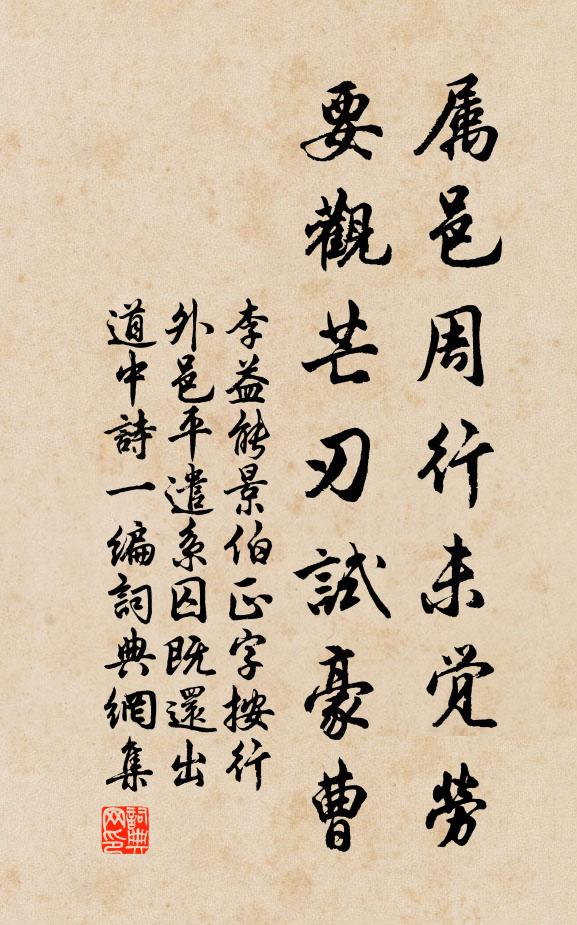 属邑周行未觉勞
要觀芒刃試豪曹
李益能景伯正字按行
外邑平遣系囚既還出
道中詩一编詞典網集
詞典网印